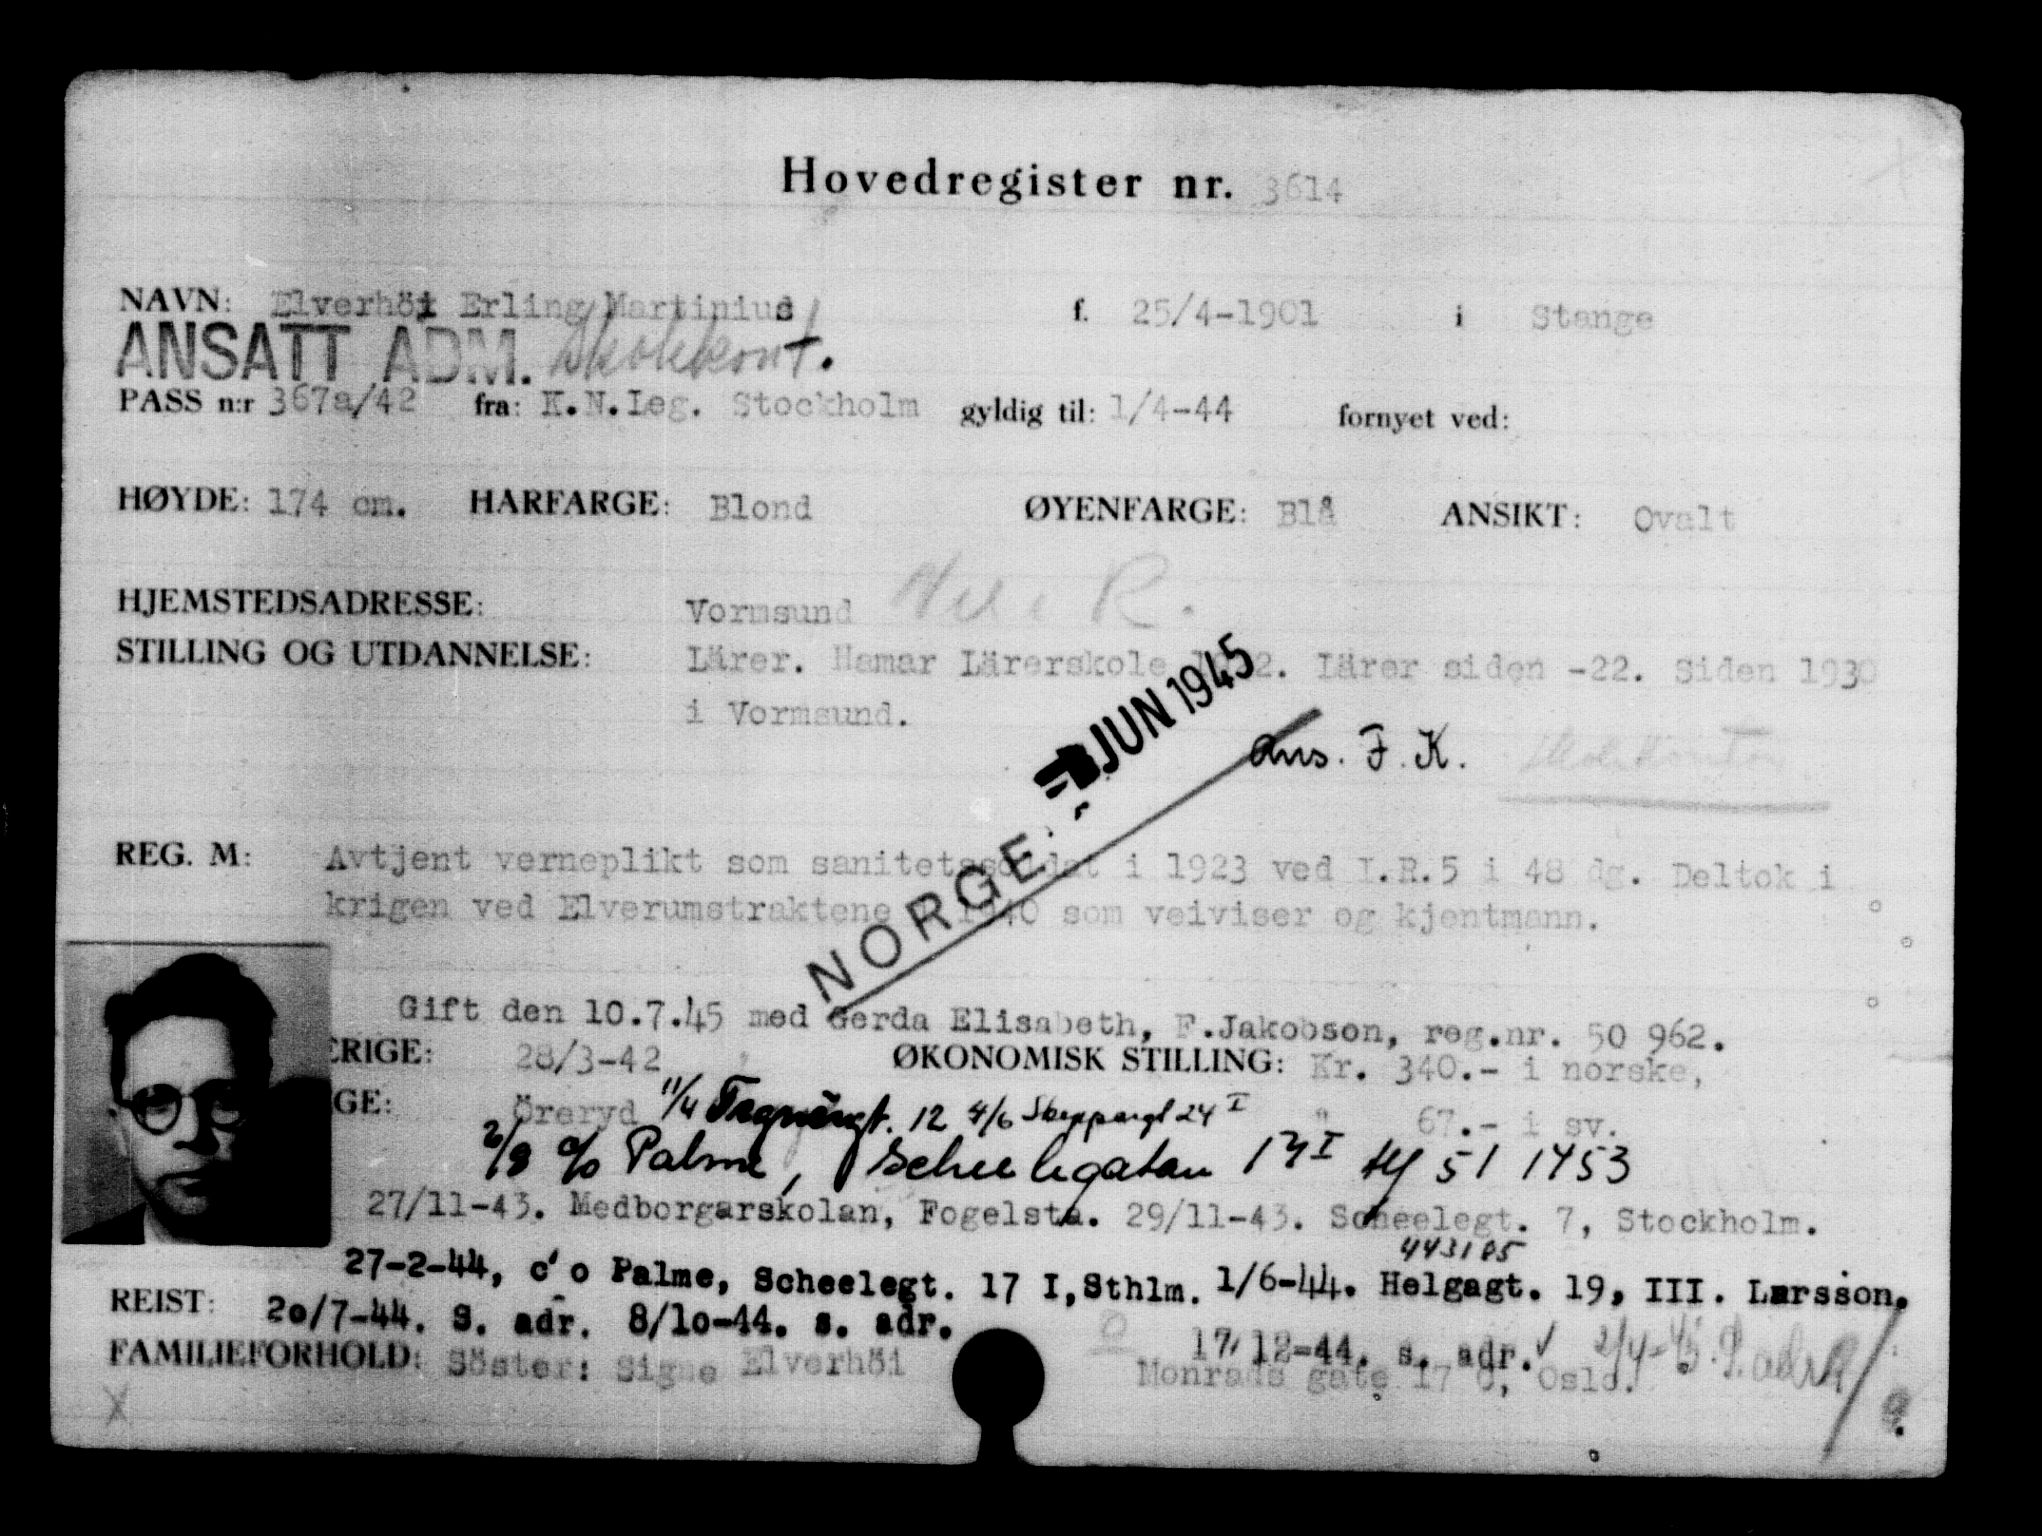 Hovedregister nr. 3614
NAVN: Elverhöi Erling Martinius f. 25/4-1901 i Stange
ANSATT ADM. Skolekont.
PASS n:r 367a/42 fra: K.N.Leg. Stockholm gyldig til: 1/4-44 fornyet ved:
HØYDE: 174 cm. HARFARGE: Blond ØYENFARGE: Blå ANSIKT: Ovalt
HJEMSTEDSADRESSE: Vormsund
STILLING OG UTDANNELSE: Lärer. Hamar Lärerskole 1922. Lärer siden -22. Siden 1930
i Vormsund.
JUN 1945
Ans. F.K. Skolekontor
REG. M: Avtjent verneplikt som sanitetssoldat i 1923 ved I.R.5 i 48 dg. Deltok i
krigen ved Elverumstraktene i 1940 som veiviser og kjentmann.
NORGE
Gift den 10.7.45 med Gerda Elisabeth, F.Jakobson, reg.nr. 50 962.
ERIGE: 28/3-42 ØKONOMISK STILLING: Kr. 340.- i norske,
GE: Öreryd 11/4 Tegnérgt. 12 4/6 Skeppargt 24 I " 67.- i sv.
c/o Palme, Scheelegatan 17 I tlf 51 1453
27/11-43. Medborgarskolan, Fogelsta. 29/11-43. Scheelegt. 7, Stockholm.
443185
27-2-44, c'o Palme, Scheelegt. 17 I, Sthlm. 1/6-44. Helgagt. 19, III. Larsson.
REIST: 20/7-44. S. adr. 8/10-44. s. adr.
17/12-44. s. adr. 2/4-45. S. adr.
FAMILIEFORHOLD: Söster: Signe Elverhöi Monrads gate 17 C, Oslo.